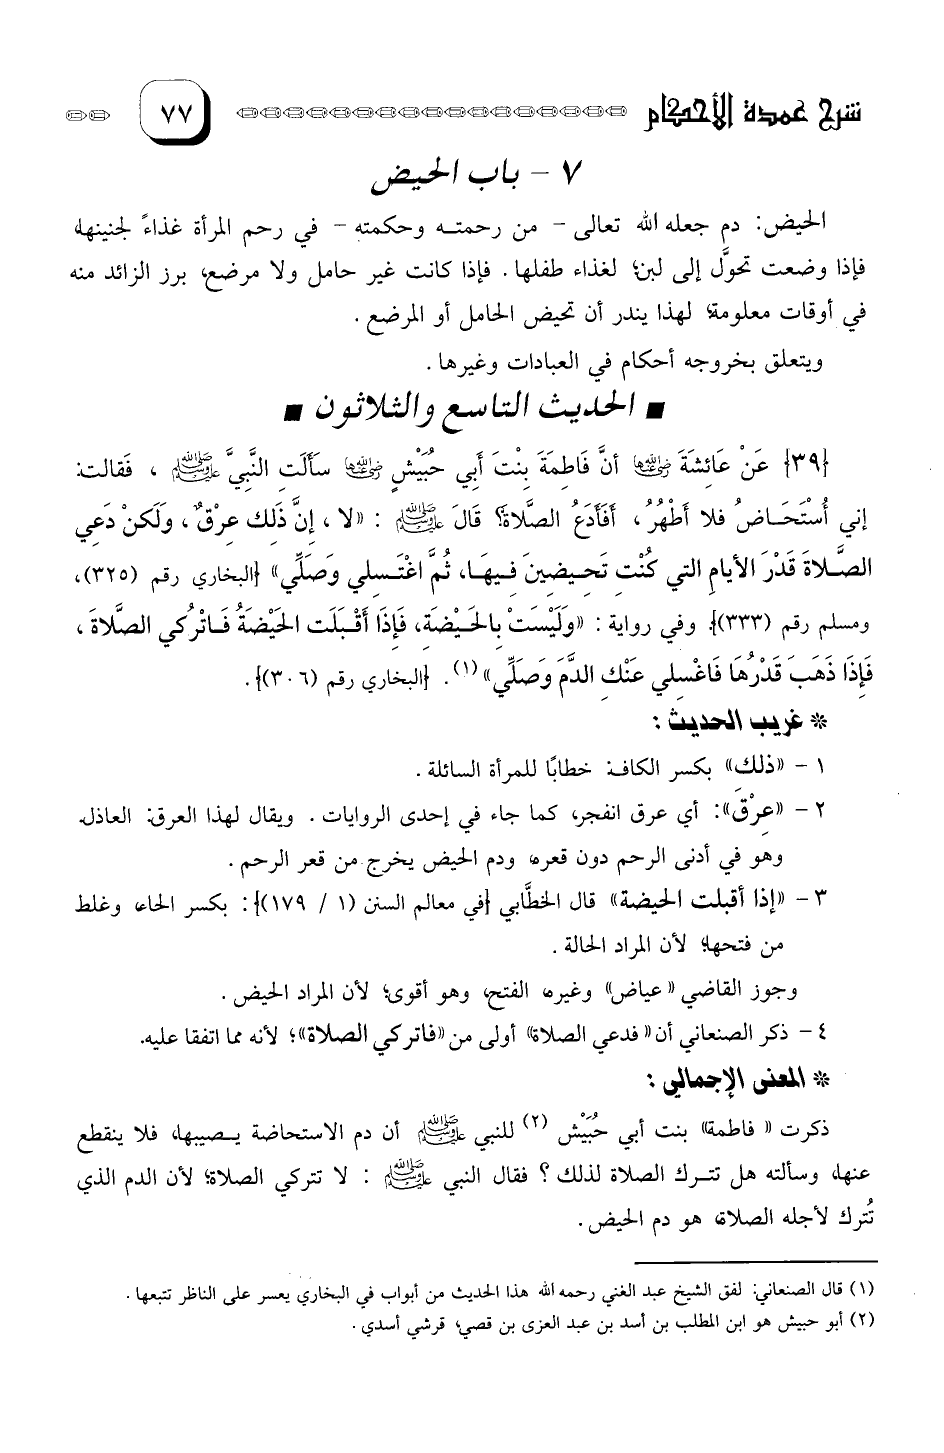 شرح عمدة الأحكام ٧٧
٧ - باب الحيض
الحيض: دم جعله الله تعالى - من رحمته وحكمته - في رحم المرأة غذاءً لجنينها،
فإذا وضعت تحوَّل إلى لبن؛ لغذاء طفلها. فإذا كانت غير حامل ولا مرضع، برز الزائد منه
في أوقات معلومة؛ لهذا يندر أن تحيض الحامل أو المرضع.
ويتعلق بخروجه أحكام في العبادات وغيرها.
■ الحديث التاسع والثلاثون ■
{٣٩} عَنْ عَائِشَةَ رضي الله عنها أنَّ فَاطِمَةَ بِنْتَ أَبِي حُبَيْشٍ رضي الله عنها سَأَلَتِ النَّبِيَّ ﷺ ، فَقالت:
إني أُسْتَحَاضُ فلا أطْهُرُ، أفَأدَعُ الصَّلَاةَ؟ قَالَ ﷺ : «لا ، إنَّ ذَلِكِ عِرْقٌ، ولَكِنْ دَعِي
الصَّلاَةَ قَدْرَ الأيامِ التي كُنْتِ تَحِيضِينَ فيهَا، ثُمَّ اغْتَسِلي وَصَلِّي» {البخاري رقم (٣٢٥)،
ومسلم رقم (٣٣٣)}. وفي رواية : «ولَيْسَتْ بِالحَيْضَة، فَإذَا أقْبَلَت الحَيْضَةُ فَاتْرُكي الصَّلاَةَ ،
فَإِذَا ذَهَبَ قَدْرُهَا فَاغْسِلي عَنْكِ الدَّمَ وَصَلِّي»(١). {البخاري رقم (٣٠٦)}.
* غريب الحديث :
١ - «ذلكِ» بكسر الكاف: خطابًا للمرأة السائلة .
٢ - «عِرْقٌ»: أي عرق انفجر، كما جاء في إحدى الروايات . ويقال لهذا العرق: العاذل.
وهو في أدنى الرحم دون قعره، ودم الحيض يخرج من قعر الرحم .
٣ - «إذا أقبلت الحيضة» قال الخطَّابي {في معالم السنن (١ / ١٧٩)}: بكسر الحاء، وغلط
من فتحها؛ لأن المراد الحالة .
وجوز القاضي «عياض» وغيره، الفتح، وهو أقوى؛ لأن المراد الحيض .
٤ - ذكر الصنعاني أن «فدعي الصلاة» أولى من «فاتركي الصلاة»؛ لأنه مما اتفقا عليه.
* المعنى الإجمالي :
ذكرت «فاطمة» بنت أبي حُبَيْش (٢) للنبي ﷺ أن دم الاستحاضة يصيبها، فلا ينقطع
عنها، وسألته هل تترك الصلاة لذلك ؟ فقال النبي ﷺ : لا تتركي الصلاة؛ لأن الدم الذي
تُترك لأجله الصلاة، هو دم الحيض.
(١) قال الصنعاني: لفق الشيخ عبد الغني رحمه الله هذا الحديث من أبواب في البخاري يعسر على الناظر تتبعها .
(٢) أبو حبيش هو ابن المطلب بن أسد بن عبد العزى بن قصي، قرشي أسدي .